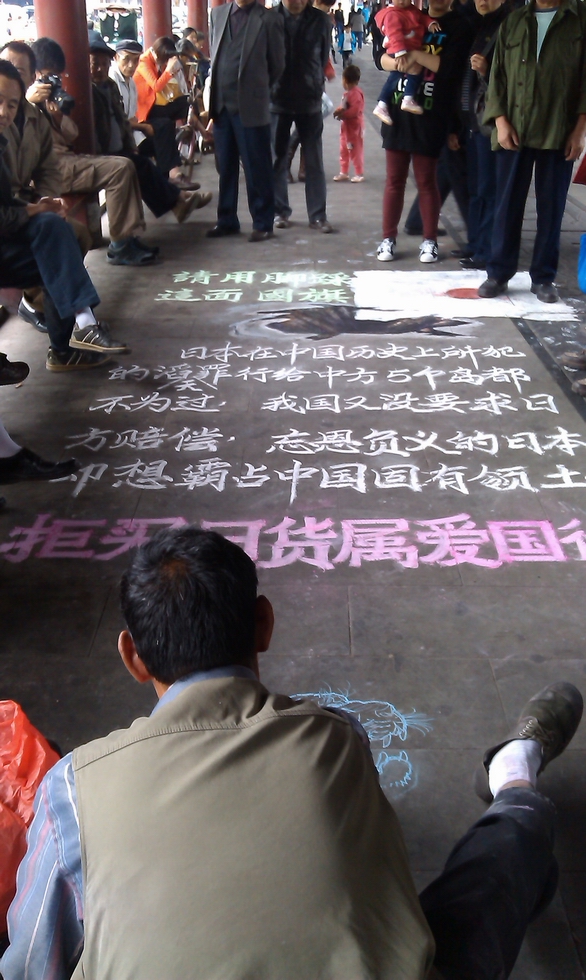 請用脚踩
這面國旗
日本在中国历史上所犯
的滔天罪行给中方5个岛都
不为过，我国又没要求日
方赔偿，忘恩负义的日本
却想霸占中国固有领土
拒买日货属爱国